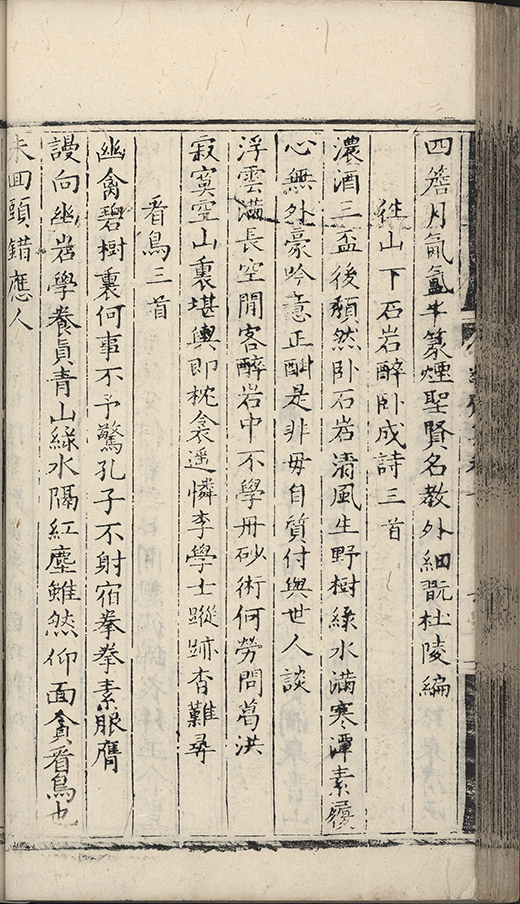 四簷月氤氳半篆煙聖賢名教外細翫杜陵編
往山下石岩醉卧成詩三首
濃酒三盃後頹然卧石岩清風生野樹綠水滿寒潭素履
心無外豪吟意正酣是非毋自質付與世人談
浮雲滿長空閒客醉岩中不學丹砂術何勞問葛洪
寂寞空山裏堪輿即枕衾遥憐李學士蹤跡杳難尋
看鳥三首
幽禽碧樹裏何事不予驚孔子不射宿拳拳素服膺
謾向幽岩學養真青山綠水隔紅塵雖然仰面貪看鳥也
未回頭錯應人